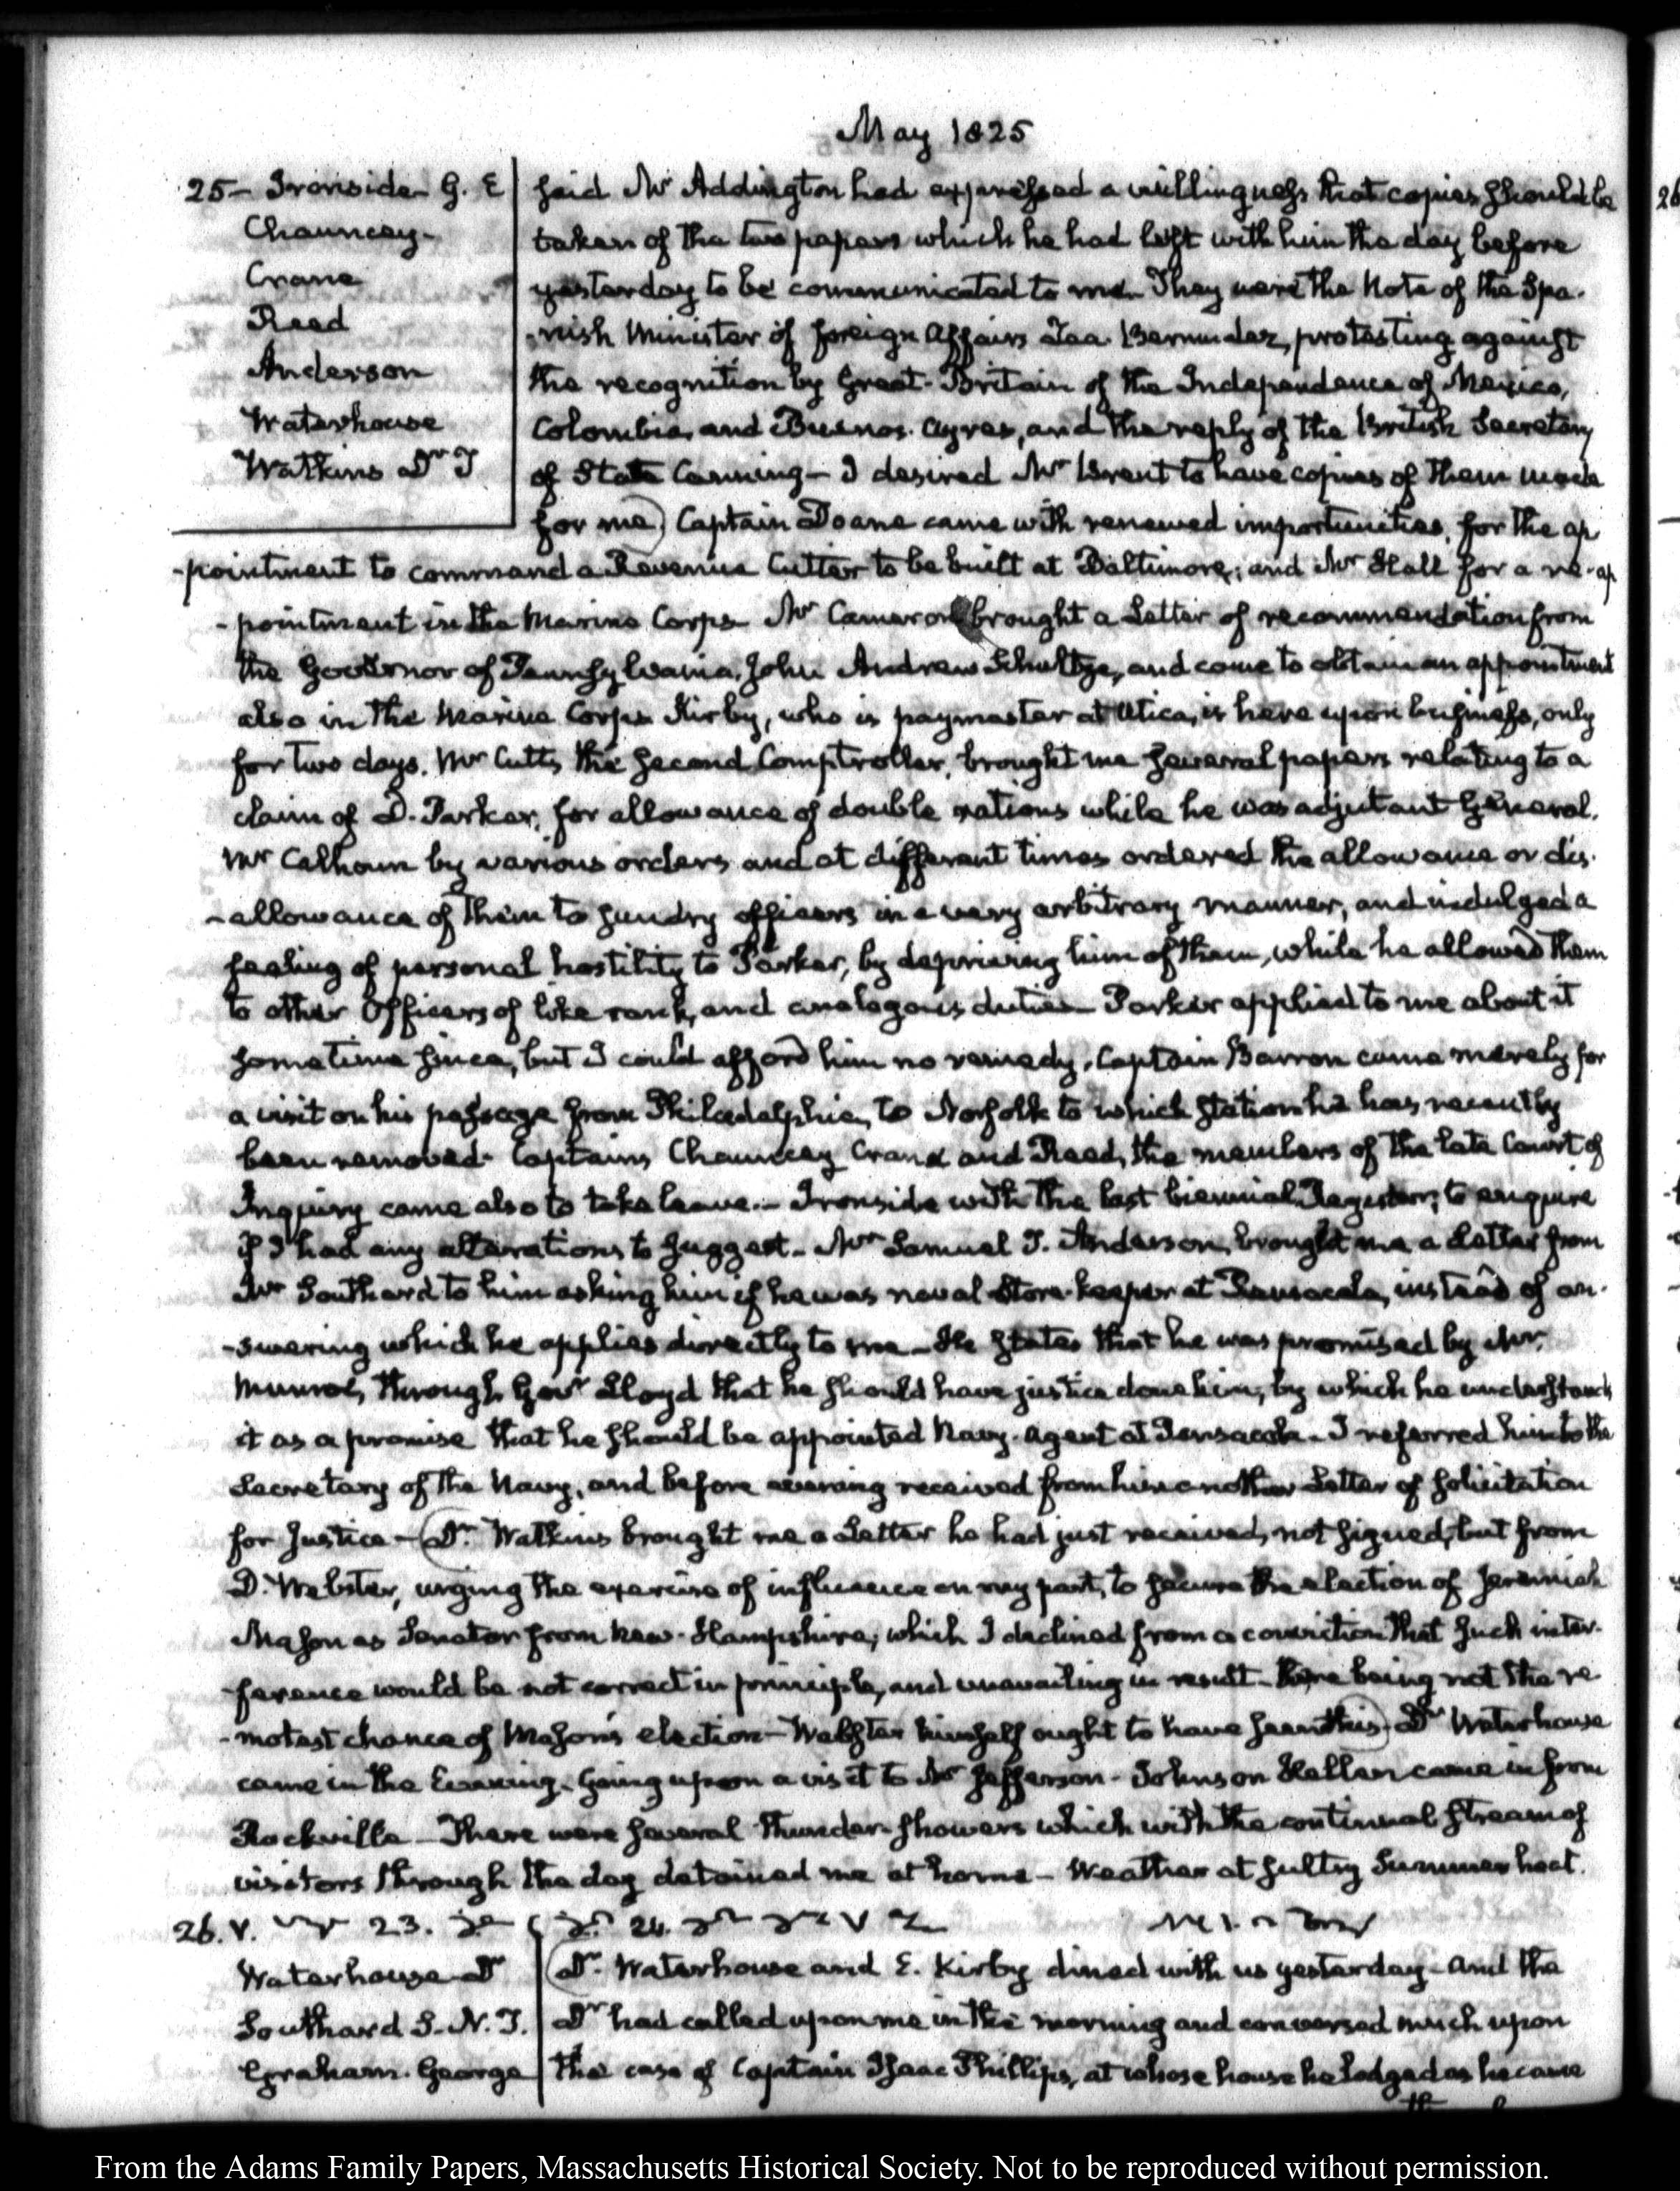 May 1825
25 – Ironside G. E
Chauncey –
Crane
Reed
Anderson
Waterhouse
Watkins Dr T
said Mr Addington had expressed a willingness that copies should be
taken of the two papers which he had left with him the day before
yesterday to be communicated to me. They were the Note of the Spa-
-nish Minister of foreign Affairs Zea Bermudez, protesting against
the recognition by Great-Britain of the Independence of Mexico,
Colombia, and Buenos-Ayres, and the reply of the British Secretary
of State Canning – I desired Mr Brent to have copies of them made
for me) Captain Doane came with renewed importunities, for the ap
-pointment to command a Revenue Cutter to be built at Baltimore; and Mr Hall for a re-ap
-pointment in the Marine Corps – Mr Cameron brought a Letter of recommendation from
the Governor of Pennsylvania, John Andrew Schultze, and come to obtain an appointment
also in the Marine Corps. Kirby, who is paymaster at Utica, is here upon business, only
for two days. Mr Cutts, the Second Comptroller, brought me several papers relating to a
claim of D. Parker, for allowance of double rations while he was adjutant General.
Mr Calhoun by various orders and at different times ordered the allowance or dis-
-allowance of them to sundry officers in a very arbitrary manner, and indulged a
feeling of personal hostility to Parker, by depriving him of them, while he allowed them
to other Officers of like rank, and analogous duties – Parker applied to me about it
sometime since, but I could afford him no remedy. Captain Barron came merely for
a visit on his passage from Philadelphia, to Norfolk to which station he has recently
been removed. Captains Chauncey Crane and Reed, the members of the late Court of
Inquiry came also to take leave. – Ironside with the last biennial Register; to enquire
if I had any alterations to suggest – Mr Samuel T. Anderson, brought me a Letter from
Mr Southard to him asking him if he was naval Store-keeper at Pensacola, instead of an-
-swering which he applies directly to me – He states that he was promised by Mr.
Munroe, through Govr Lloyd that he should have justice done him; by which he understands
it as a promise that he should be appointed Navy-Agent at Pensacola – I referred him to the
Secretary of the Navy, and before evening received from him another Letter of solicitation
for Justice – (Dr. Watkins brought me a Letter he had just received, not signed, but from
D. Webster, urging the exercise of influence on my part, to secure the election of Jeremiah
Mason as Senator from New-Hampshire; which I declined from a conviction that such inter-
-ference would be not correct in principle, and unavailing in result – there being not the re
-motest chance of Mason's election – Webster himself ought to have seen this) Dr Waterhouse
came in the Evening. Going upon a visit to Mr Jefferson – Johnson Hellen came in from
Rockville – There were several thunder-showers which with the continual stream of
visitors through the day detained me at home – Weather at sultry Summer heat.
26. V. 23. 24.
Waterhouse Dr
Southard S. N. J.
Graham. George
(Dr. Waterhouse and E. Kirby dined with us yesterday – And the
Dr had called upon me in the morning and conversed much upon
the case of Captain Isaac Phillips, at whose house he lodged as he came
From the Adams Family Papers, Massachusetts Historical Society. Not to be reproduced without permission.